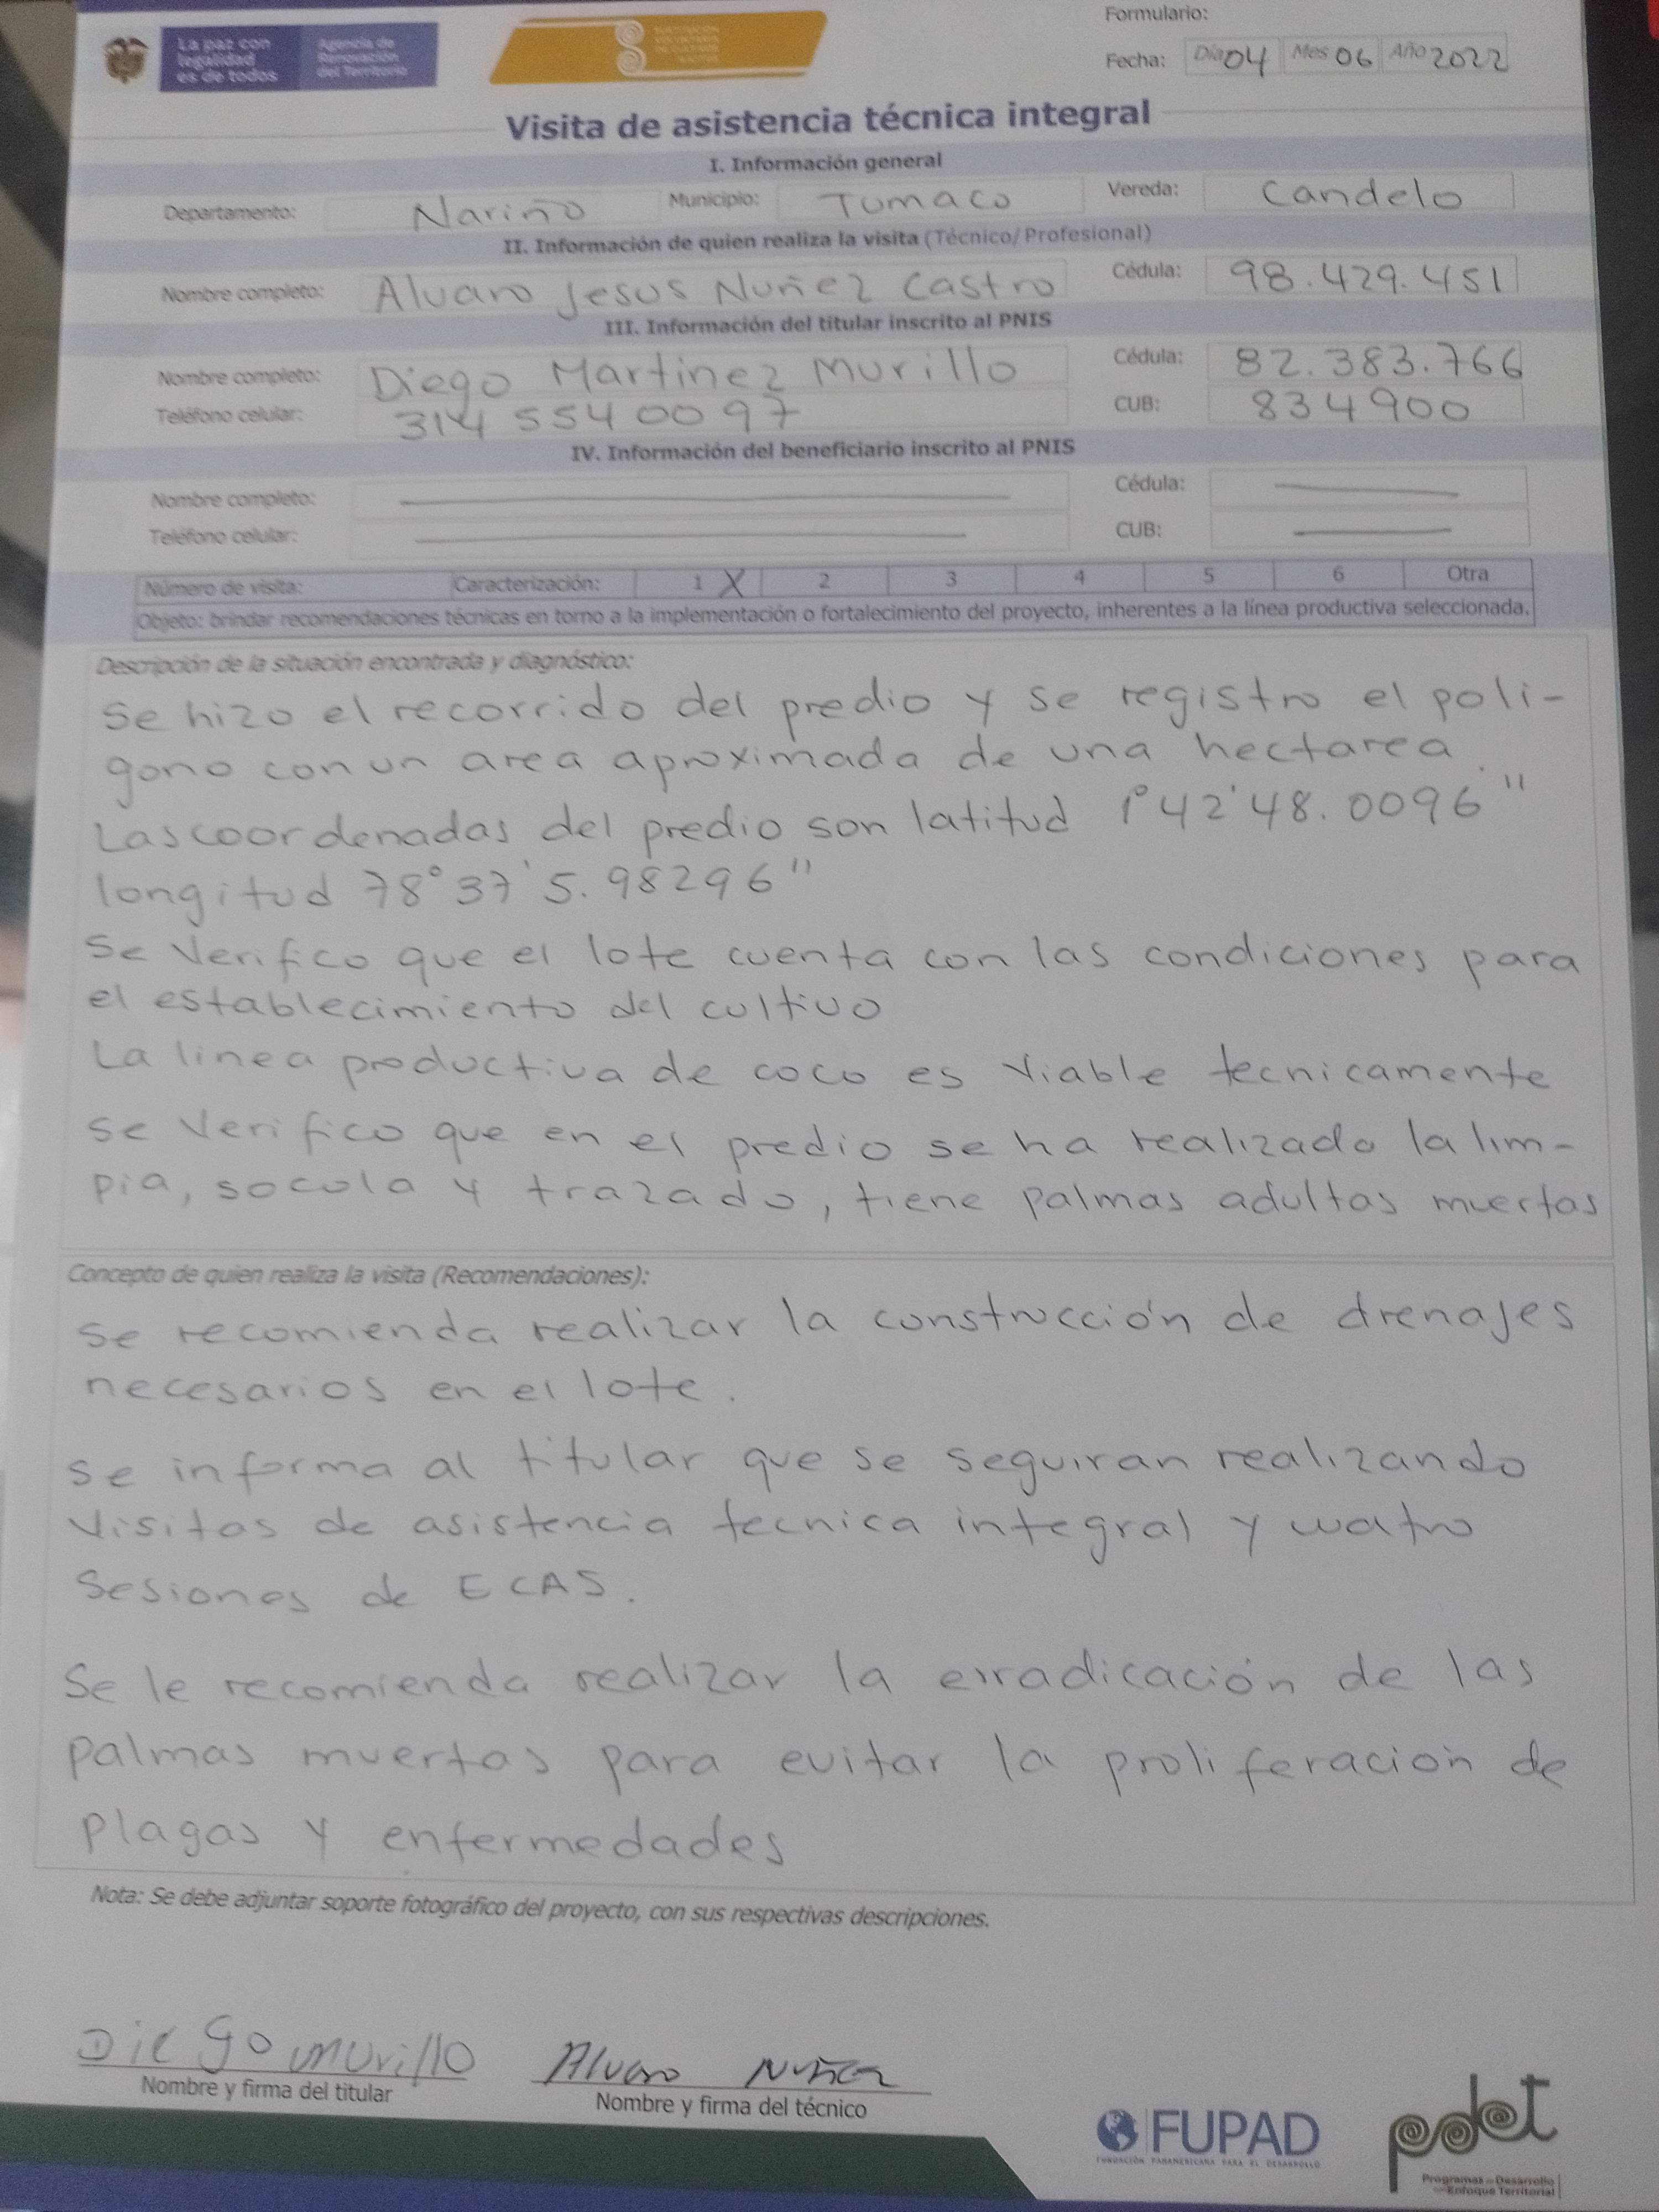 La paz con legalidad es de todos
Agencia de Renovación del Territorio
Formulario:
Fecha: Día 04 Mes 06 Año 2022
Visita de asistencia técnica integral
I. Información general
Departamento: Nariño Municipio: Tumaco Vereda: Candelo
II. Información de quien realiza la visita (Técnico/Profesional)
Nombre completo: Alvaro Jesus Nuñez Castro Cédula: 98.429.451
III. Información del titular inscrito al PNIS
Nombre completo: Diego Martinez Murillo Cédula: 82.383.766
Teléfono celular: 314 554 00 97 CUB: 834900
IV. Información del beneficiario inscrito al PNIS
Nombre completo: Cédula:
Teléfono celular: CUB:
Número de visita: Caracterización: 1 X 2 3 4 5 6 Otra
Objeto: brindar recomendaciones técnicas en torno a la implementación o fortalecimiento del proyecto, inherentes a la línea productiva seleccionada.
Descripción de la situación encontrada y diagnóstico:
Se hizo el recorrido del predio y se registro el poli-
gono con un area aproximada de una hectarea.
Las coordenadas del predio son latitud 1°42'48.0096"
longitud 78°37'5.98296"
Se Verifico que el lote cuenta con las condiciones para
el establecimiento del cultivo
La linea productiva de coco es Viable tecnicamente
Se Verifico que en el predio se ha realizado la lim-
pia, socola y trazado, tiene palmas adultas muertas
Concepto de quien realiza la visita (Recomendaciones):
Se recomienda realizar la construcción de drenajes
necesarios en el lote.
Se informa al titular que se seguiran realizando
Visitas de asistencia tecnica integral y cuatro
Sesiones de ECAS.
Se le recomienda realizar la erradicación de las
palmas muertas para evitar la proliferación de
plagas y enfermedades
Nota: Se debe adjuntar soporte fotográfico del proyecto, con sus respectivas descripciones.
Diego Murillo Alvaro Nuñez
Nombre y firma del titular Nombre y firma del técnico
FUPAD
FUNDACIÓN PANAMERICANA PARA EL DESARROLLO
pdet
Programas de Desarrollo
con Enfoque Territorial